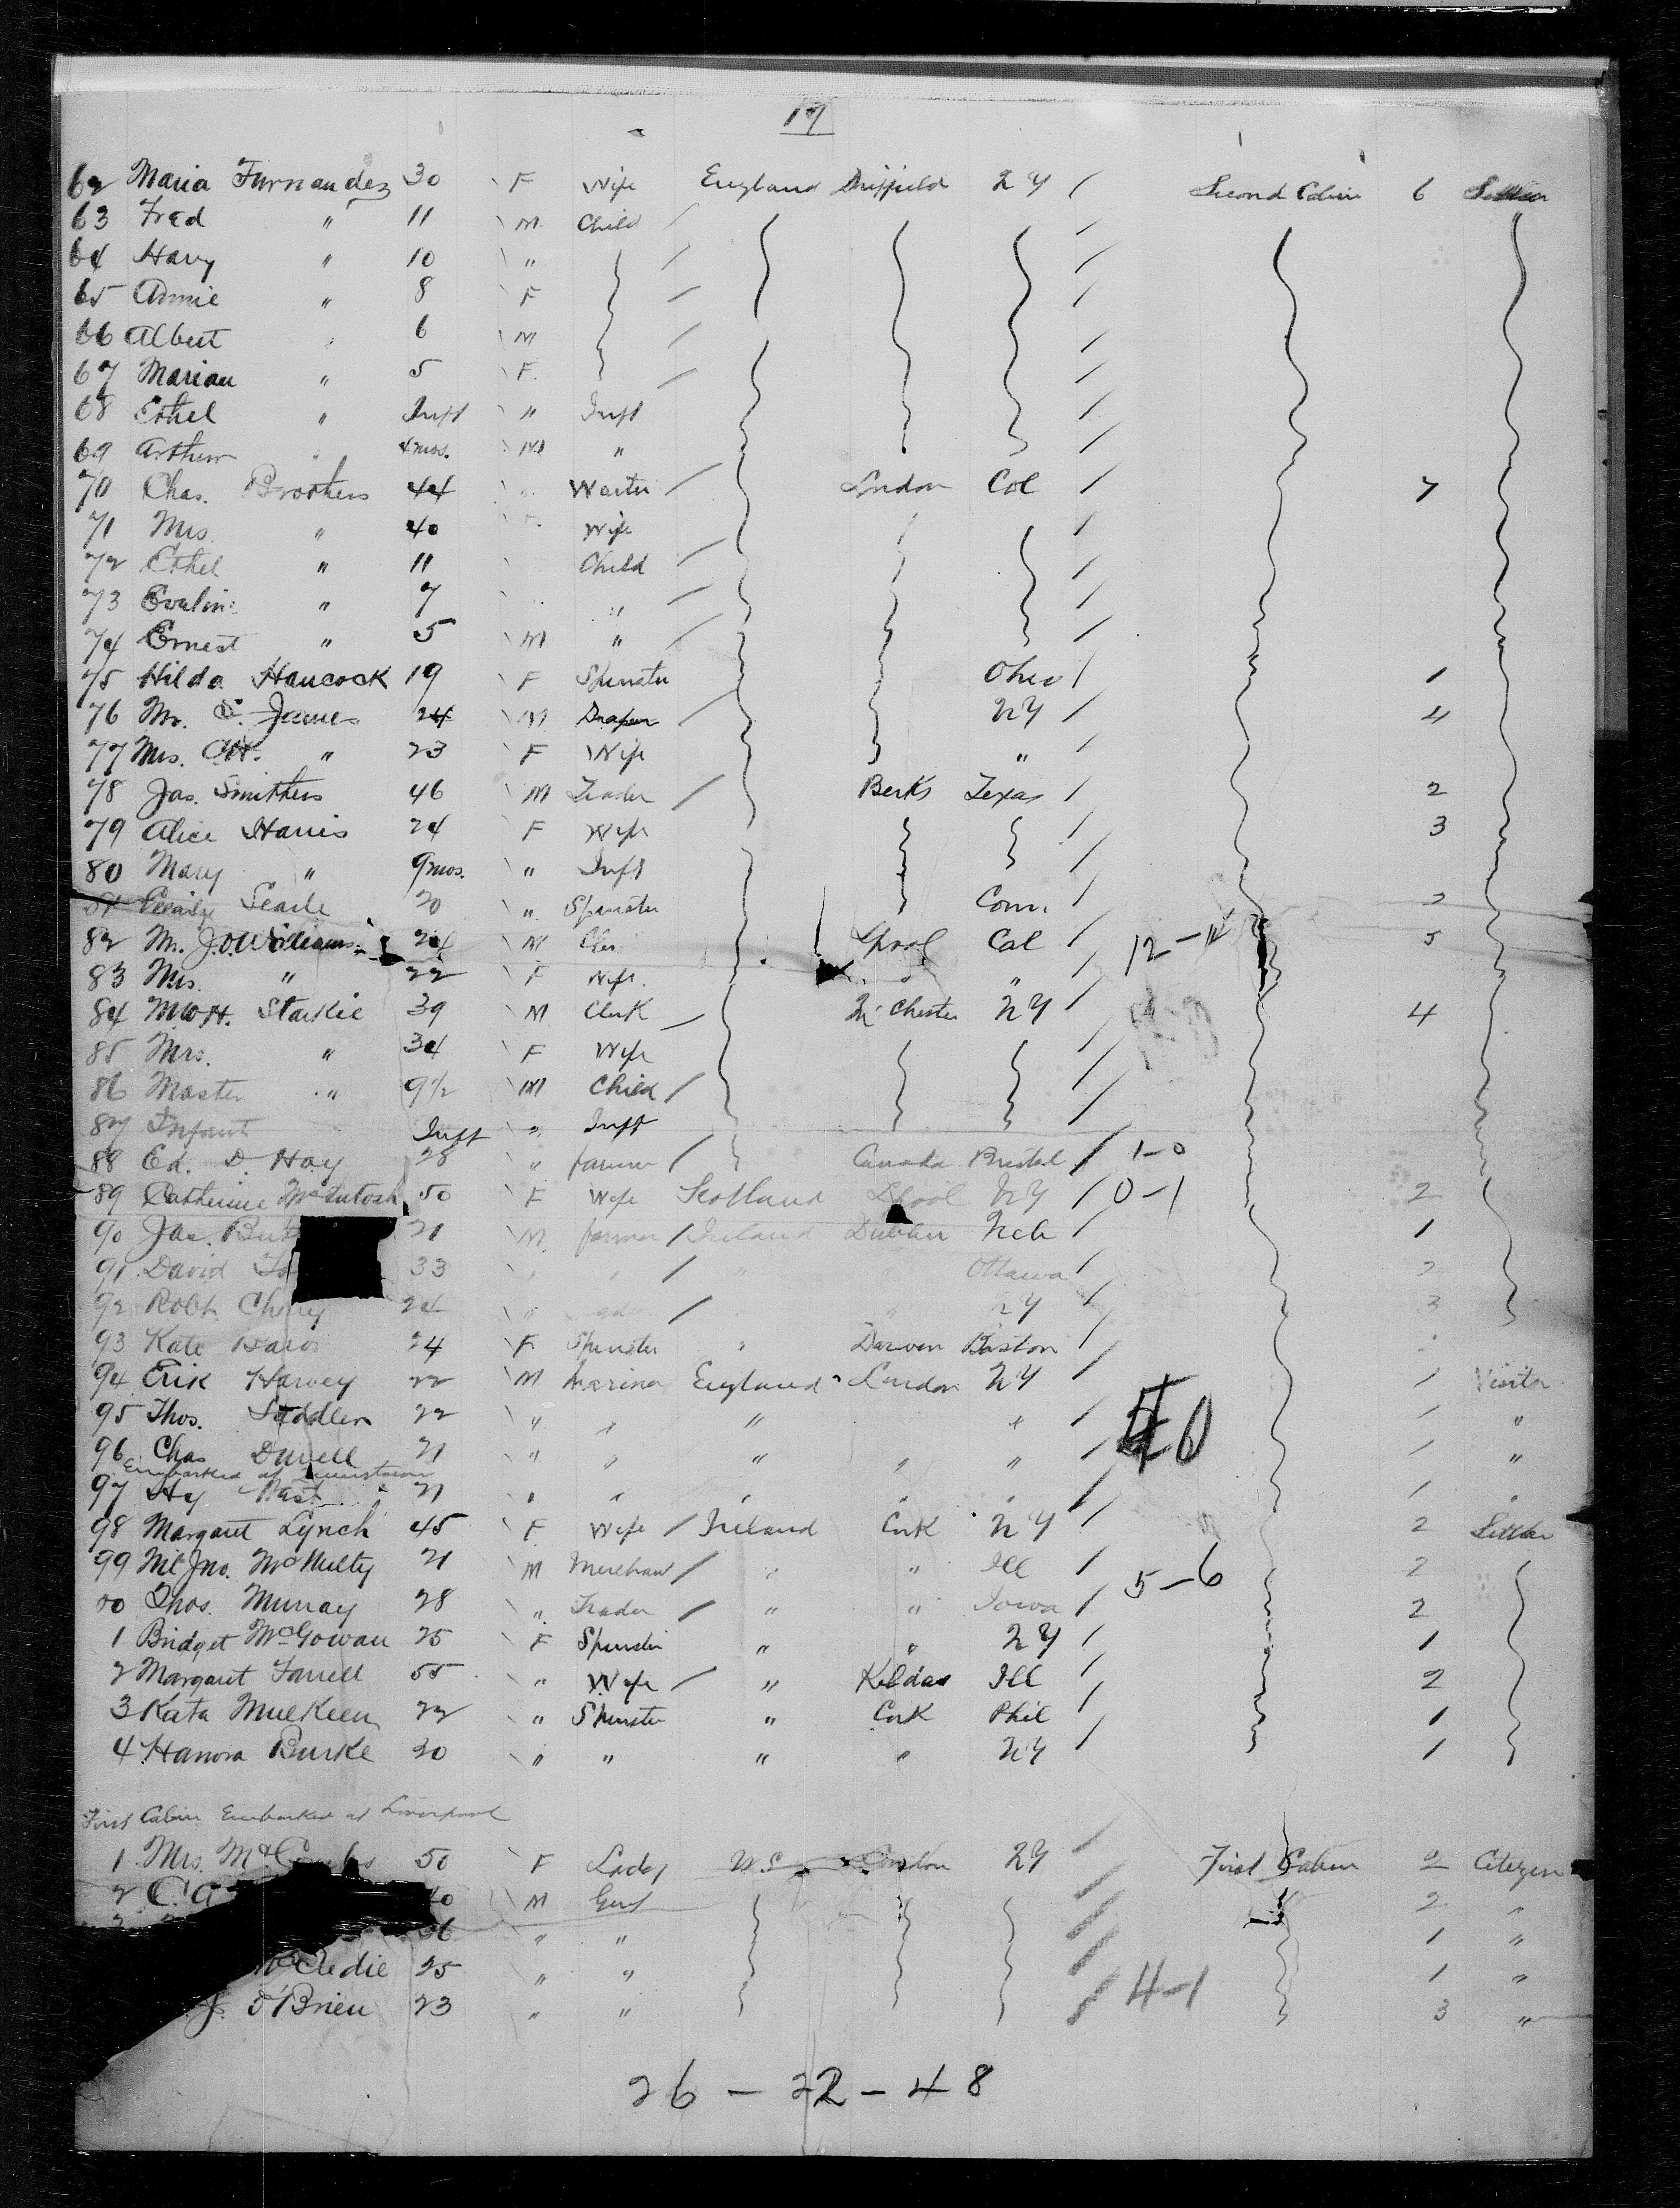 19
62 Maria Furnandez 30 F Wife England Driffield NY / Second Cabin 6 Settler
63 Fred " 11 M Child /
64 Harry " 10 "
65 Annie " 8 F
66 Albert " 6 M
67 Marian " 5 F
68 Ethel " Inft " Inft
69 Arthur " 4 mos. M "
70 Chas. Brothers 44 " Waiter / London Col / 7
71 Mrs. " 40 F Wife
72 Ethel " 11 Child
73 Evaline " 7 "
74 Ernest " 5 M "
75 Hilda Hancock 19 F Spinster Ohio / 1
76 Mr. C. James 24 M Draper / NY / 4
77 Mrs. C.H. " 23 F Wife " /
78 Jas. Smithers 46 M Trader / Berks Texas / 2
79 Alice Harris 24 F Wife 3
80 Mary " 9 mos. " Inft
81 Searle 20 " Spinster Conn. 2
82 Mr. J.O. Williams 24 M L'pool Cal / 12 - 14 5
83 Mrs. " 22 F Wife " " /
84 M W H. Starkie 39 M Clerk / M'Chester NY / 4
85 Mrs. " 34 F Wife
86 Master " 9 1/2 M Child /
87 Infant Inft " Inft
88 Ed. D. Hay 28 " farmer / Canada Bristol / 1-0
89 Catherine McIntosh 50 F Wife Scotland L'pool NY / 0-1 2
90 Jas. 21 M farmer / Ireland Dublin Neb / 1
91 David 33 " " / " Ottawa / 2
92 Robt. Cherry 24 " / " NY / 3
93 Kate 24 F Spinster " Darwen Boston /
94 Erik Harvey 22 M Mariner England London NY / 1 Visitor
95 Thos. Saddler 22 " " " " / 1 "
96 Chas Durell 21 " " " " " / 1 "
Embarked at Queenstown
97 Hy 21 " " " " " / 1 "
98 Margaret Lynch 45 F Wife / Ireland Cork NY / 2 Settler
99 Mr Jno. McNulty 21 M Merchant / " " Ill / 5-6 2
00 Thos. Murray 28 " Trader / " " Iowa / 2
1 Bridget McGowan 25 F Spinster " " NY / 1
2 Margaret Farrell 55 " Wife / " Kildare Ill / 2
3 Kate Mulkeen 22 " Spinster " Cork Phil / 1
4 Hanora Burke 20 " " " " NY / 1
First Cabin Embarked at Liverpool
1 Mrs. McCombs 50 F Lady U.S. London NY / First Cabin 2 Citizen
2 C. A 40 M Gent 2 "
36 " " 1 "
25 " " 1 "
J. O'Brien 23 " " 4-1 3 "
26 - 22 - 48